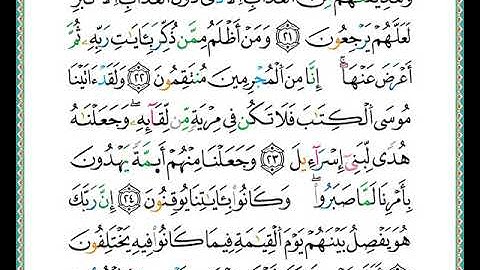 وَلَنُذِيقَنَّهُم مِّنَ ٱلْعَذَابِ ٱلْأَدْنَىٰ دُونَ ٱلْعَذَابِ ٱلْأَكْبَرِ
لَعَلَّهُمْ يَرْجِعُونَ ٢١ وَمَنْ أَظْلَمُ مِمَّن ذُكِّرَ بِـَٔايَٰتِ رَبِّهِۦ ثُمَّ
أَعْرَضَ عَنْهَآ ۚ إِنَّا مِنَ ٱلْمُجْرِمِينَ مُنتَقِمُونَ ٢٢ وَلَقَدْ ءَاتَيْنَا
مُوسَى ٱلْكِتَٰبَ فَلَا تَكُن فِى مِرْيَةٍ مِّن لِّقَآئِهِۦ ۖ وَجَعَلْنَٰهُ
هُدًى لِّبَنِىٓ إِسْرَٰٓءِيلَ ٢٣ وَجَعَلْنَا مِنْهُمْ أَئِمَّةً يَهْدُونَ
بِأَمْرِنَا لَمَّا صَبَرُوا۟ ۖ وَكَانُوا۟ بِـَٔايَٰتِنَا يُوقِنُونَ ٢٤ إِنَّ رَبَّكَ
هُوَ يَفْصِلُ بَيْنَهُمْ يَوْمَ ٱلْقِيَٰمَةِ فِيمَا كَانُوا۟ فِيهِ يَخْتَلِفُونَ